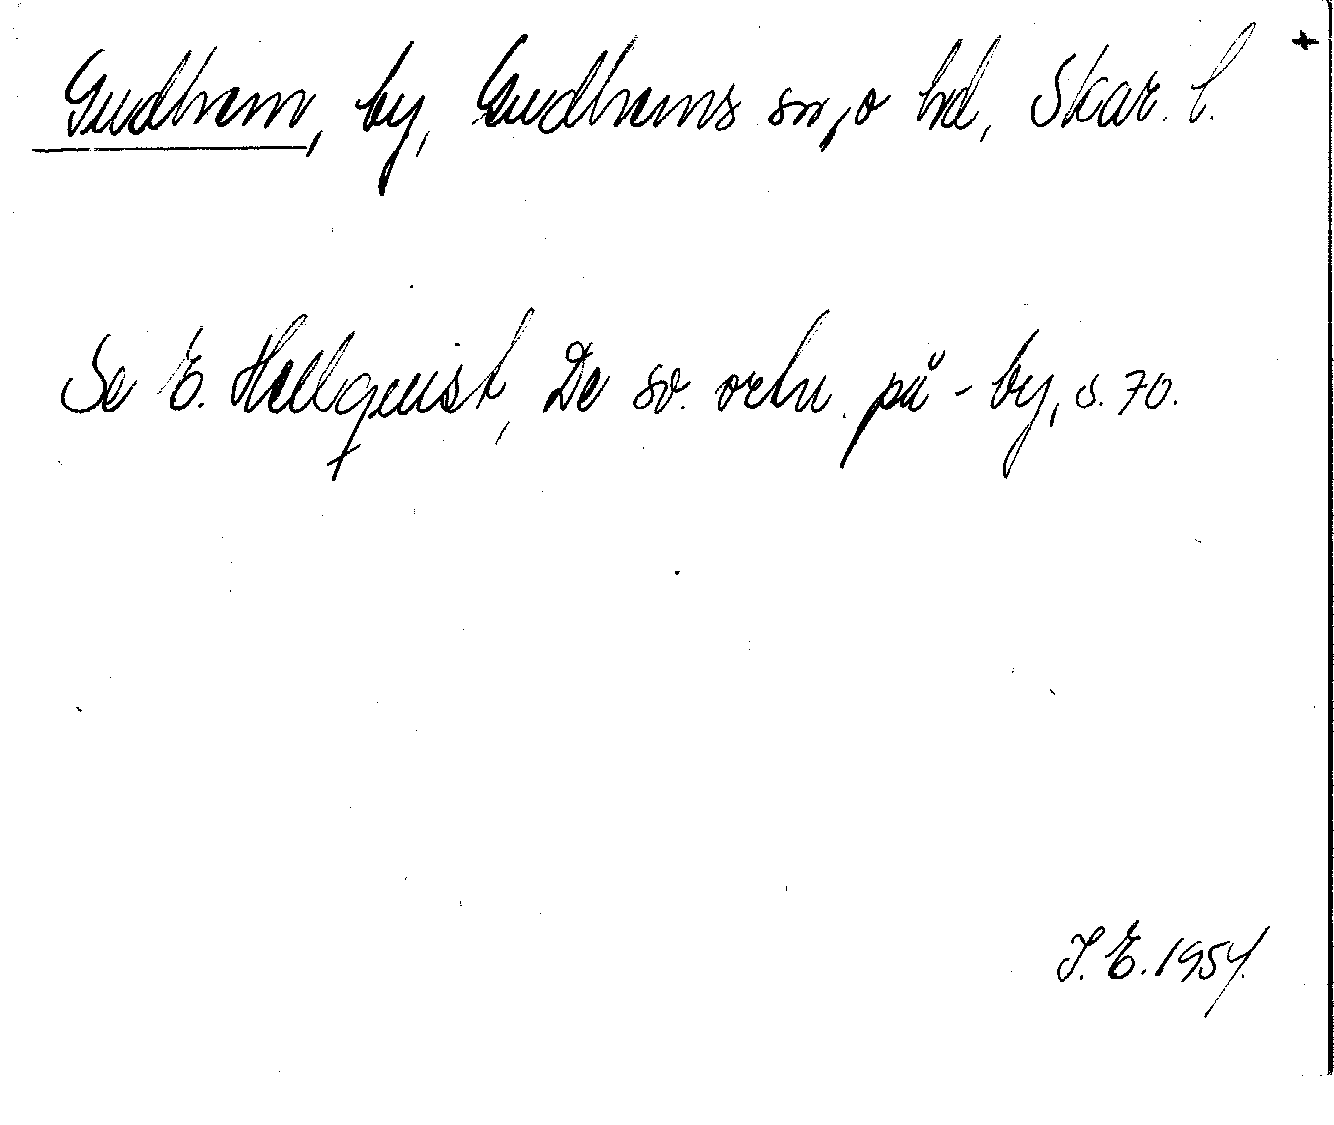 +
Gudhem, by, Gudhems sn, o hd, Skar. l.
Se E. Hellquist, De sv. ortn. på -by, s. 70.
I. E. 1954.